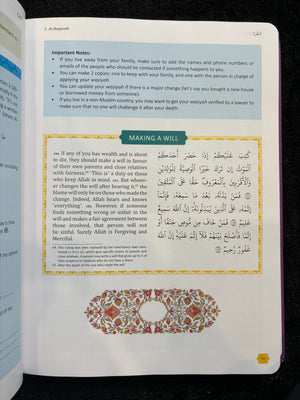 2. Al-Baqarah
Important Notes:
• If you live away from your family, make sure to add the names and phone numbers or
emails of people who should be contacted if something happens to you.
• You can make 2 copies: one to keep with your family, and one with the person in charge of
applying your waṣiyah.
• You can update your waṣiyah if there is a major change (let's say you bought a new house
or borrowed money from someone).
• If you live in a non-Muslim country, you may want to get your waṣiyah verified by a lawyer to
make sure that no one will challenge it after your death.
MAKING A WILL
180. If any of you has wealth and is about
to die, they should make a will in favour
of their own parents and close relatives
with fairness.⁶⁴ ˹This is˺ a duty on those
who keep Allah in mind. 181. But whoev-
er changes the will after hearing it,⁶⁵ the
blame will only be on those who made the
change. Indeed, Allah hears and knows
˹everything˺. 182. However, if someone
finds something wrong or unfair in the
will and makes a fair agreement between
those involved, that person will not
be sinful. Surely Allah is Forgiving and
Merciful.
كُتِبَ عَلَيْكُمْ إِذَا حَضَرَ أَحَدَكُمُ
ٱلْمَوْتُ إِن تَرَكَ خَيْرًا ٱلْوَصِيَّةُ لِلْوَٰلِدَيْنِ
وَٱلْأَقْرَبِينَ بِٱلْمَعْرُوفِ حَقًّا عَلَى ٱلْمُتَّقِينَ
۝ فَمَنۢ بَدَّلَهُۥ بَعْدَ مَا سَمِعَهُۥ فَإِنَّمَآ
إِثْمُهُۥ عَلَى ٱلَّذِينَ يُبَدِّلُونَهُۥٓ إِنَّ ٱللَّهَ سَمِيعٌ
عَلِيمٌ ۝ فَمَنْ خَافَ مِن مُّوصٍ جَنَفًا أَوْ
إِثْمًا فَأَصْلَحَ بَيْنَهُمْ فَلَآ إِثْمَ عَلَيْهِ إِنَّ ٱللَّهَ
غَفُورٌ رَّحِيمٌ ۝
64 This ruling was later replaced by the inheritance laws men-
tioned in 4:11-12, which gave specific shares to parents and
close relatives. A person may write a will that gives up to ⅓ of
their property to relatives who do not have a share.
65 After the death of the one who made the will.